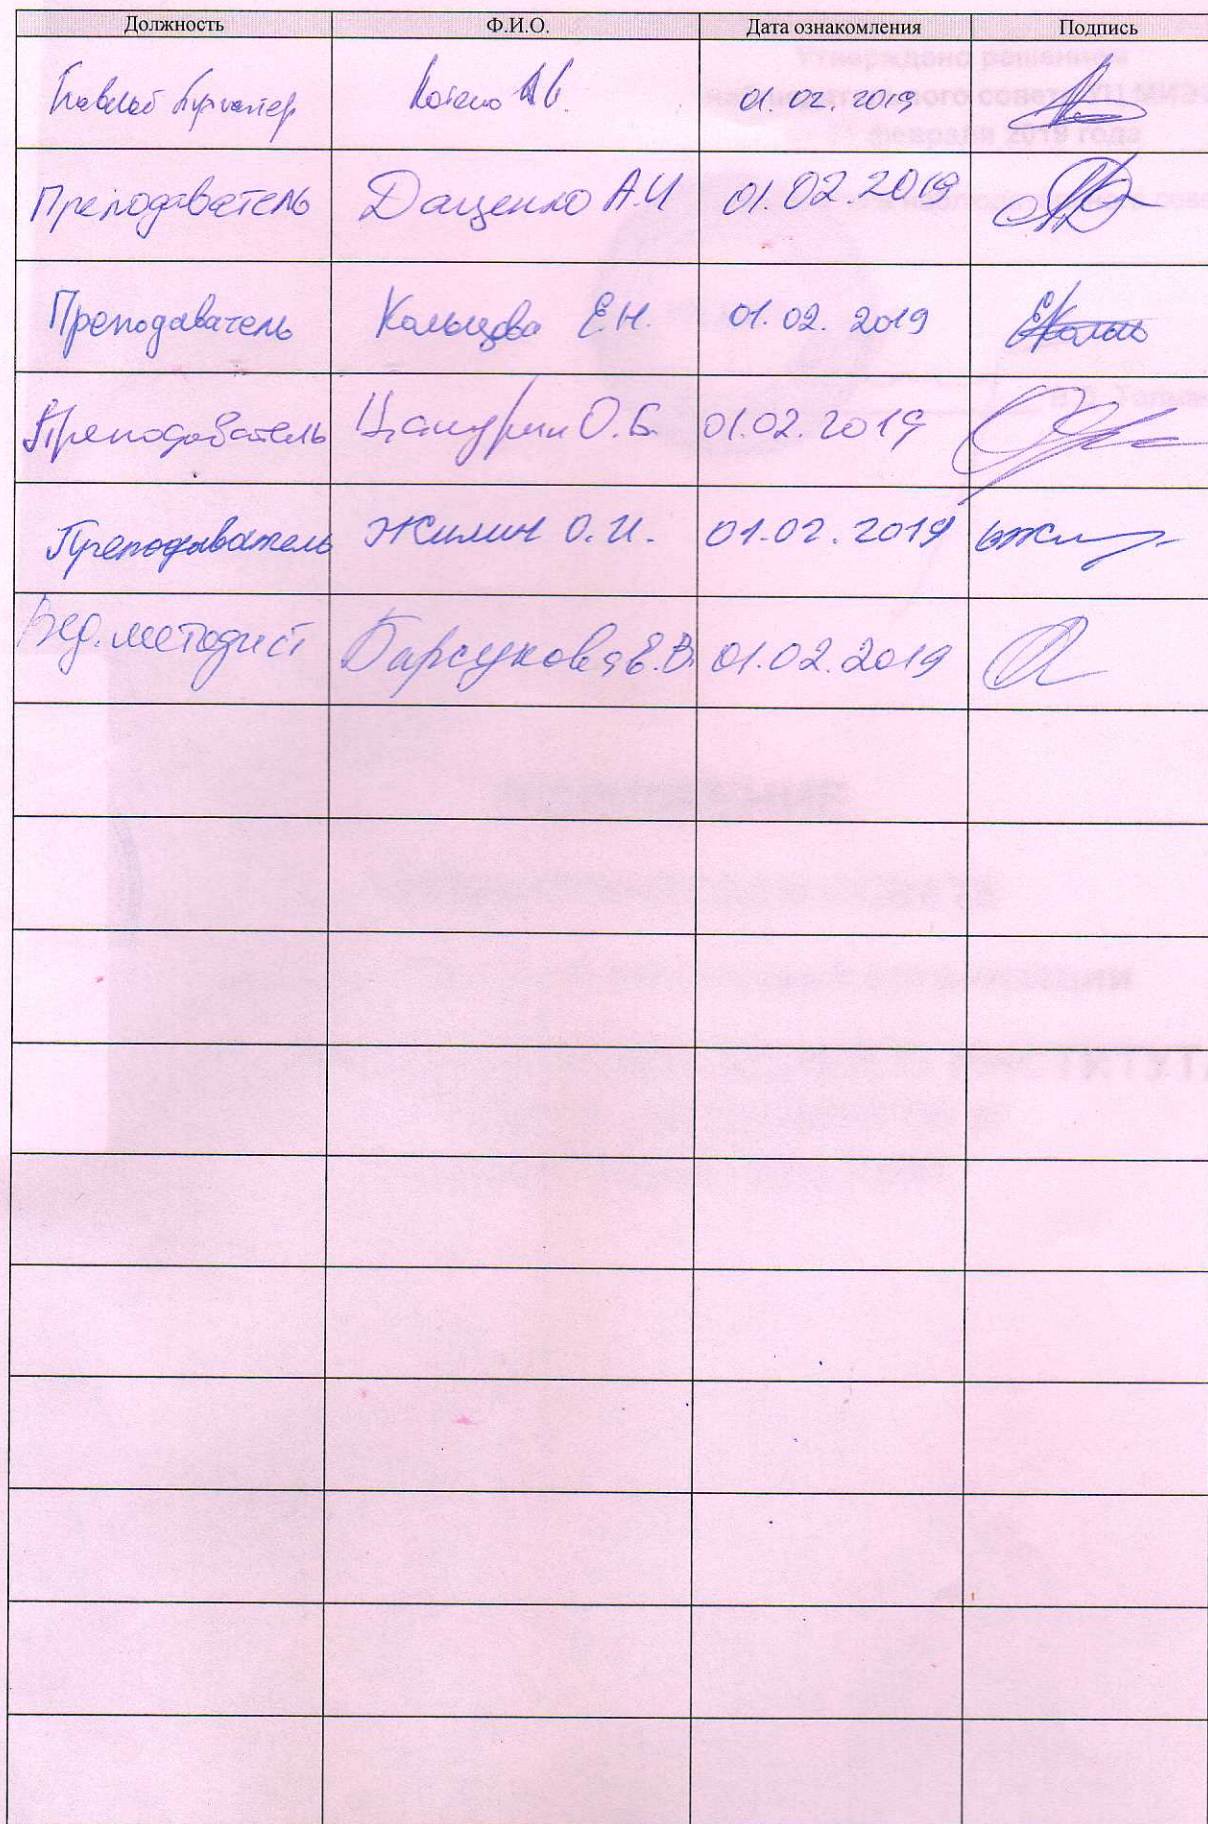 Должность Ф.И.О. Дата ознакомления Подпись
Главный бухгалтер 01.02.2019
Преподаватель Даценко А.И 01.02.2019
Преподаватель Кольцова Е.Н. 01.02.2019
Преподаватель О.Б. 01.02.2019
Преподаватель Жилин О.И. 01.02.2019
Вед. методист Барсукова Е.В. 01.02.2019